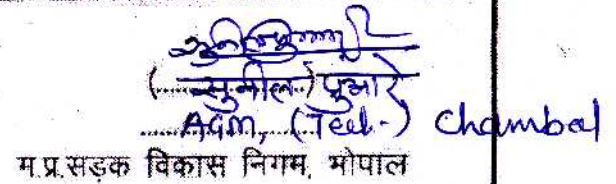 (सुनील पुआरे)
AGM, (Tech-) Chambal
म.प्र.सड़क विकास निगम, भोपाल